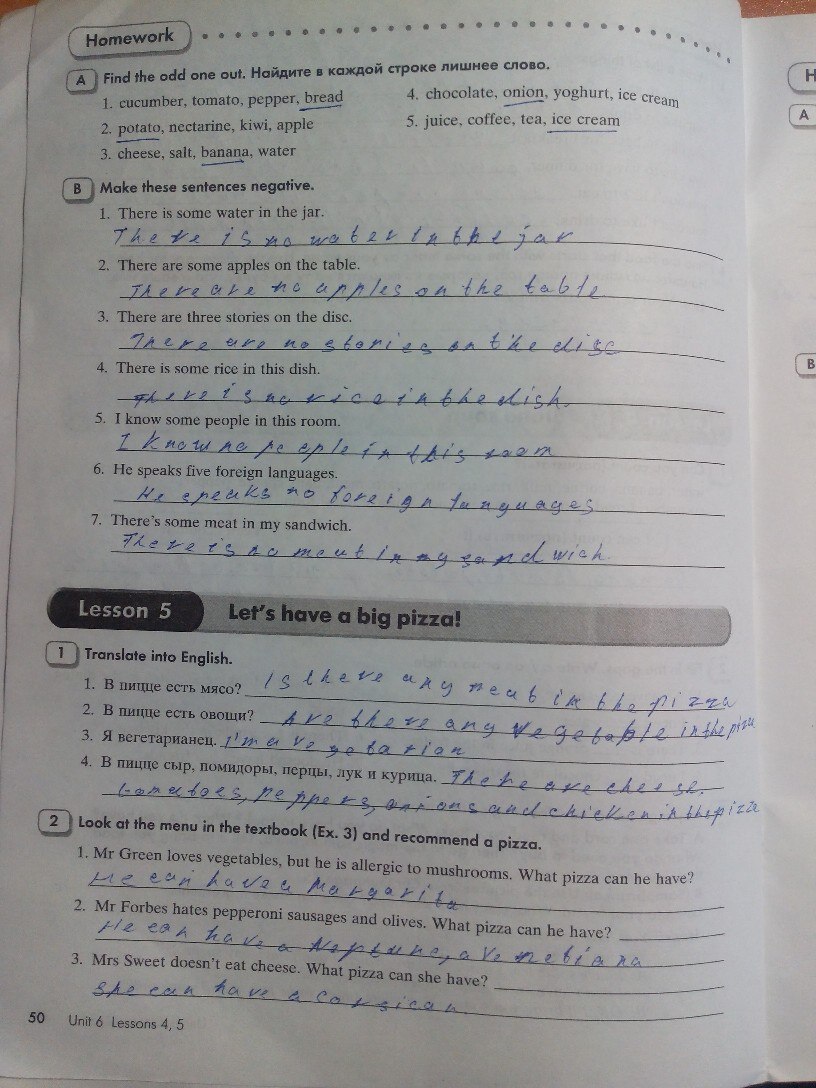 Homework
A Find the odd one out. Найдите в каждой строке лишнее слово.
1. cucumber, tomato, pepper, bread
2. potato, nectarine, kiwi, apple
3. cheese, salt, banana, water
4. chocolate, onion, yoghurt, ice cream
5. juice, coffee, tea, ice cream
B Make these sentences negative.
1. There is some water in the jar.
There is no water in the jar
2. There are some apples on the table.
There are no apples on the table
3. There are three stories on the disc.
There are no stories on the disc
4. There is some rice in this dish.
There is no rice in the dish.
5. I know some people in this room.
I know no people in this room
6. He speaks five foreign languages.
He speaks no foreign languages
7. There's some meat in my sandwich.
There is no meat in my sandwich.
Lesson 5 Let's have a big pizza!
1 Translate into English.
1. В пицце есть мясо? Is there any meat in the pizza
2. В пицце есть овощи? Are there any vegetable in the pizza
3. Я вегетарианец. I'm a vegetarion
4. В пицце сыр, помидоры, перцы, лук и курица. There are cheese.
tomatoes, peppers, onions and chicken in the pizza
2 Look at the menu in the textbook (Ex. 3) and recommend a pizza.
1. Mr Green loves vegetables, but he is allergic to mushrooms. What pizza can he have?
He can have a Margarita
2. Mr Forbes hates pepperoni sausages and olives. What pizza can he have?
He can have a Neptune, a Venetiana
3. Mrs Sweet doesn't eat cheese. What pizza can she have?
She can have a Corsican.
50 Unit 6 Lessons 4, 5
H
A
B